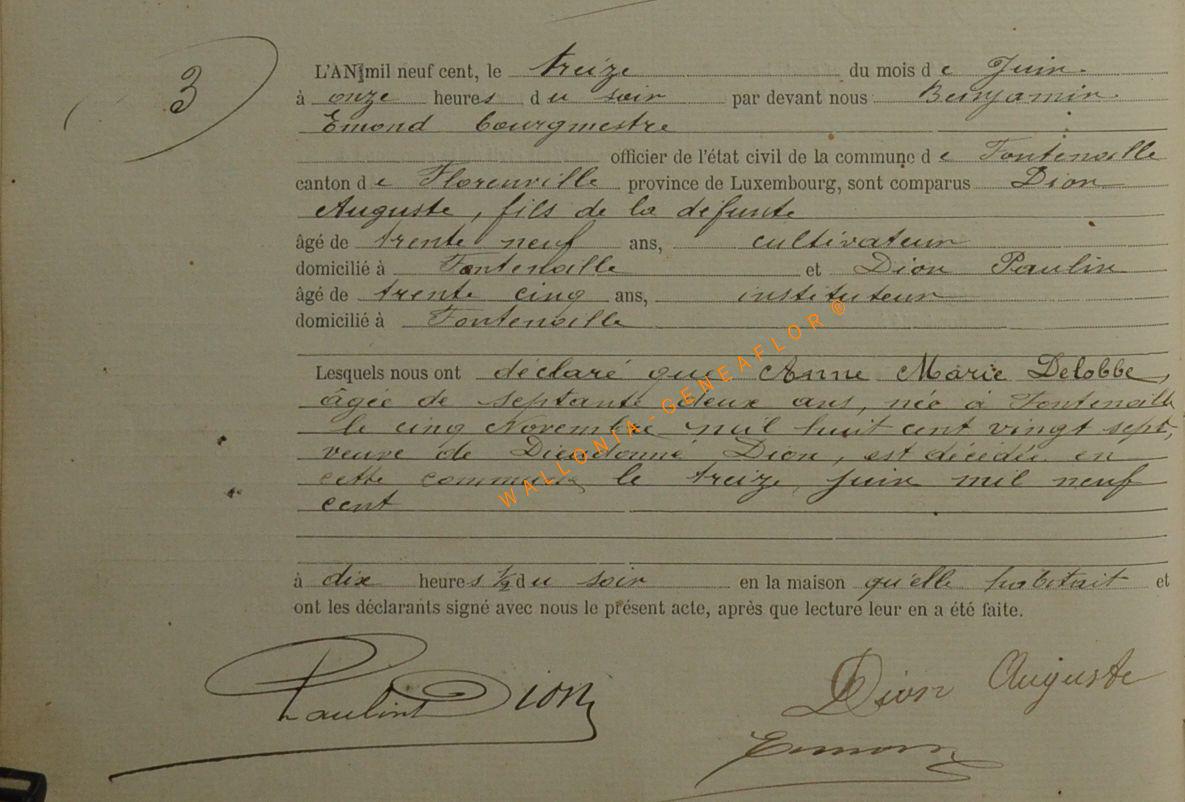 3
L'AN mil neuf cent, le treize du mois de Juin
à onze heures du soir par devant nous Benjamin
Emond bourgmestre
officier de l'état civil de la commune de Fontenoille
canton de Florenville province de Luxembourg, sont comparus Dion
Auguste, fils de la défunte
âgé de trente neuf ans, cultivateur
domicilié à Fontenoille et Dion Paulin
âgé de trente cinq ans, instituteur
domicilié à Fontenoille
Lesquels nous ont déclaré que Anne Marie Delobbe,
âgée de septante deux ans, née à Fontenoille
le cinq Novembre mil huit cent vingt sept,
veuve de Dieudonné Dion, est décédée en
cette commune le treize juin mil neuf
cent
à dix heures ½ du soir en la maison qu'elle habitait et
ont les déclarants signé avec nous le présent acte, après que lecture leur en a été faite.
Paulin Dion
Dion Auguste
Emond
WALLONIA-GENEAFLOR ©